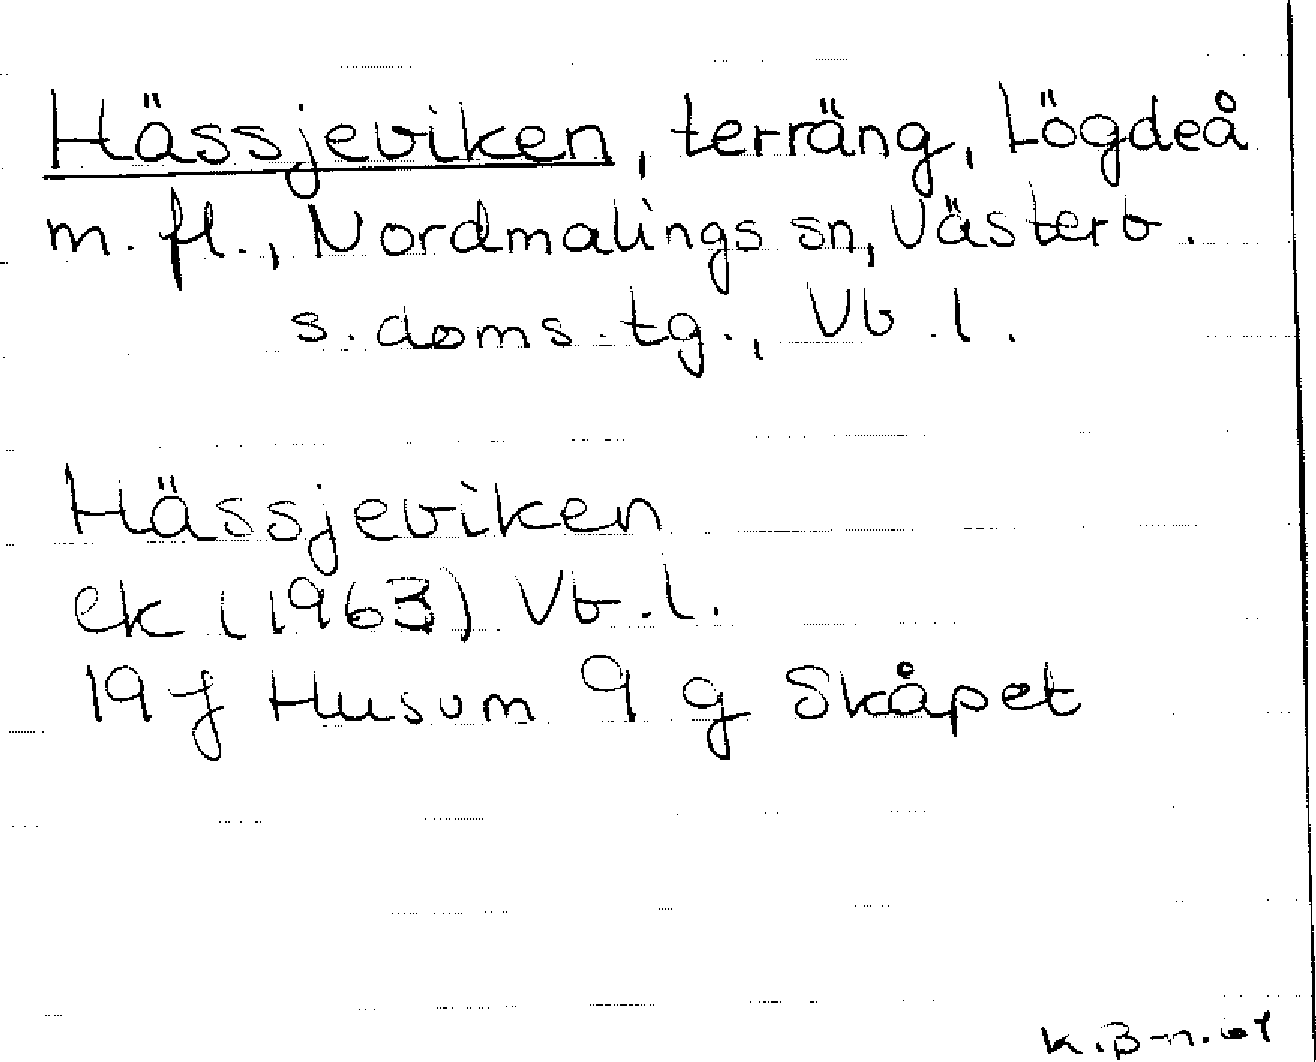 Hässjeviken, terräng, Lögdeå
m. fl., Nordmalings sn, Västerb.
s. doms. tg., Vb. l.
Hässjeviken
ek (1963) Vb. l.
19 J Husum 9 g Skåpet
K. B-n.